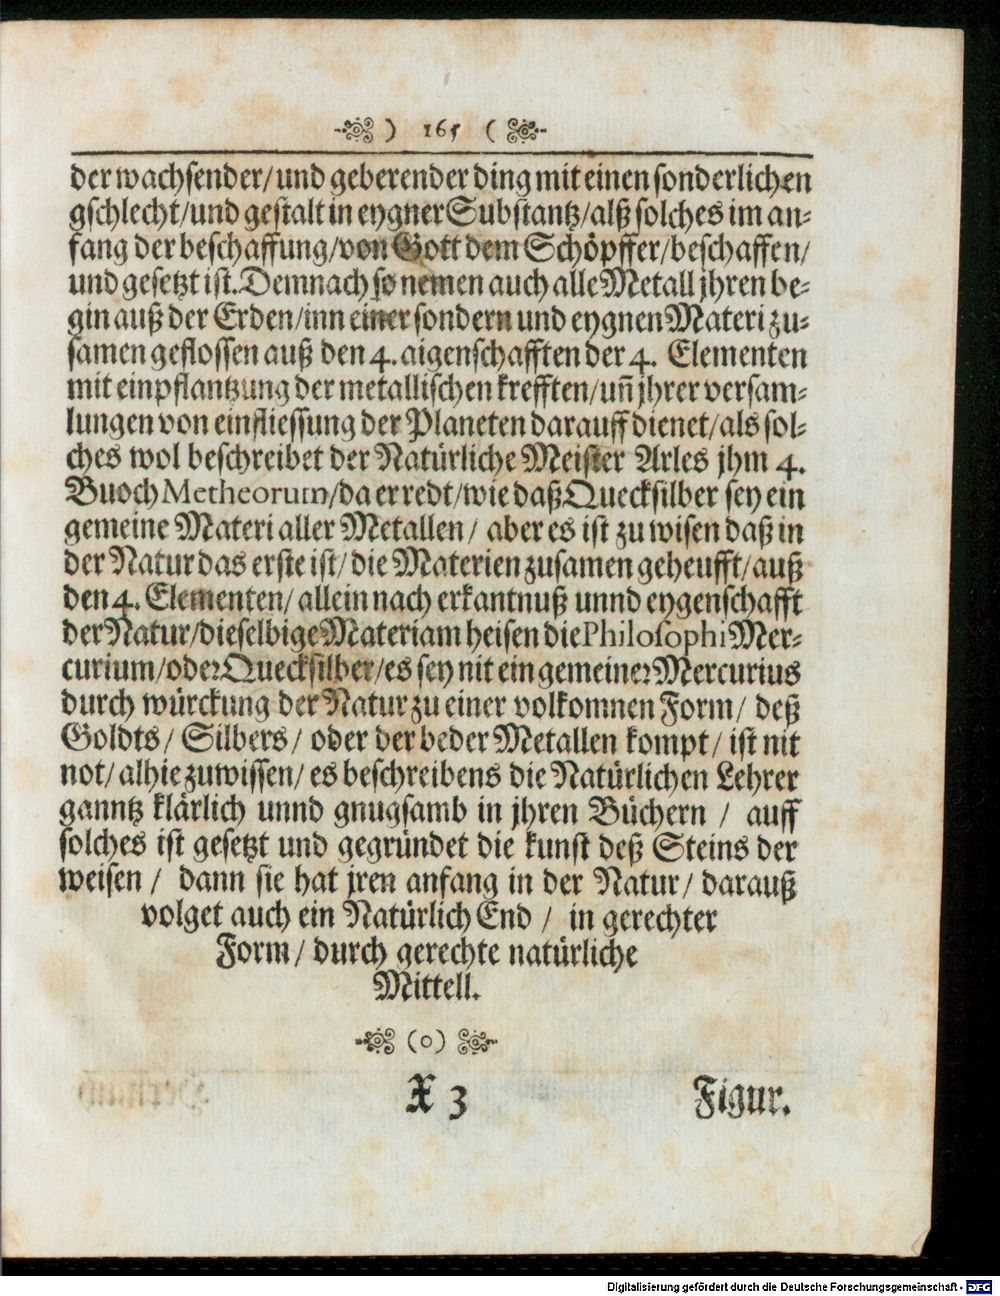 ) 165 (
der wachsender/und geberender ding mit einen sonderlichen
gschlecht/und gestalt in eygner Substantz/alß solches im an-
fang der beschaffung/von Gott dem Schöpffer/beschaffen/
und gesetzt ist. Demnach so nemen auch alle Metall jhren be-
gin auß der Erden/inn einer sondern und eygnen Materi zu-
samen geflossen auß den 4. aigenschafften der 4. Elementen
mit einpflantzung der metallischen krefften/uñ jhrer versam-
lungen von einfliessung der Planeten darauff dienet/als sol-
ches wol beschreibet der Natürliche Meister Arles jhm 4.
Buoch Metheorum/da er redt/wie daß Quecksilber sey ein
gemeine Materi aller Metallen/ aber es ist zu wisen daß in
der Natur das erste ist/die Materien zusamen geheufft/auß
den 4. Elementen/ allein nach erkantnuß unnd eygenschafft
der Natur/dieselbige Materiam heisen die Philosophi Mer-
curium/oder Quecksilber/es sey nit ein gemeiner Mercurius
durch würckung der Natur zu einer volkomnen Form/ deß
Goldts/ Silbers/ oder der beder Metallen kompt/ ist nit
not/ alhie zuwissen/ es beschreibens die Natürlichen Lehrer
ganntz klärlich unnd gnugsamb in jhren Büchern / auff
solches ist gesetzt und gegründet die kunst deß Steins der
weisen / dann sie hat jren anfang in der Natur/ darauß
volget auch ein Natürlich End / in gerechter
Form/ durch gerechte natürliche
Mittell.
(o)
X 3 Figur.
Digitalisierung gefördert durch die Deutsche Forschungsgemeinschaft - DFG